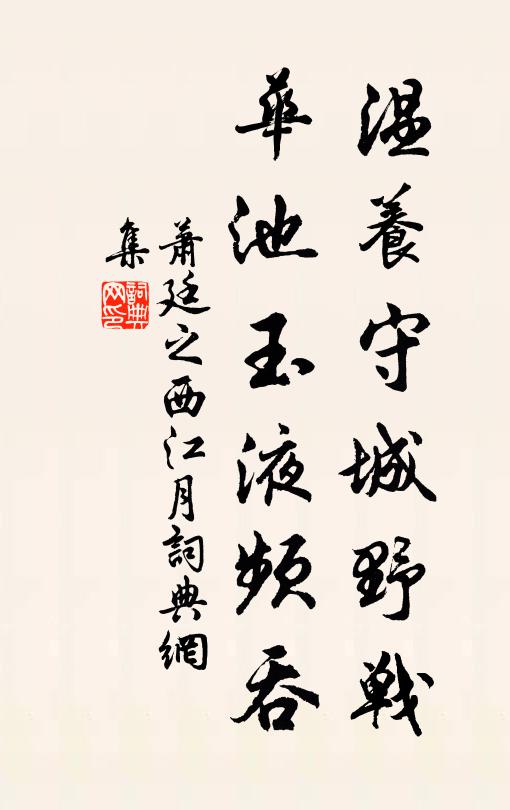 温養守城野戦
華池玉液頻吞
蕭廷之西江月詞典網
集
詞典
网印